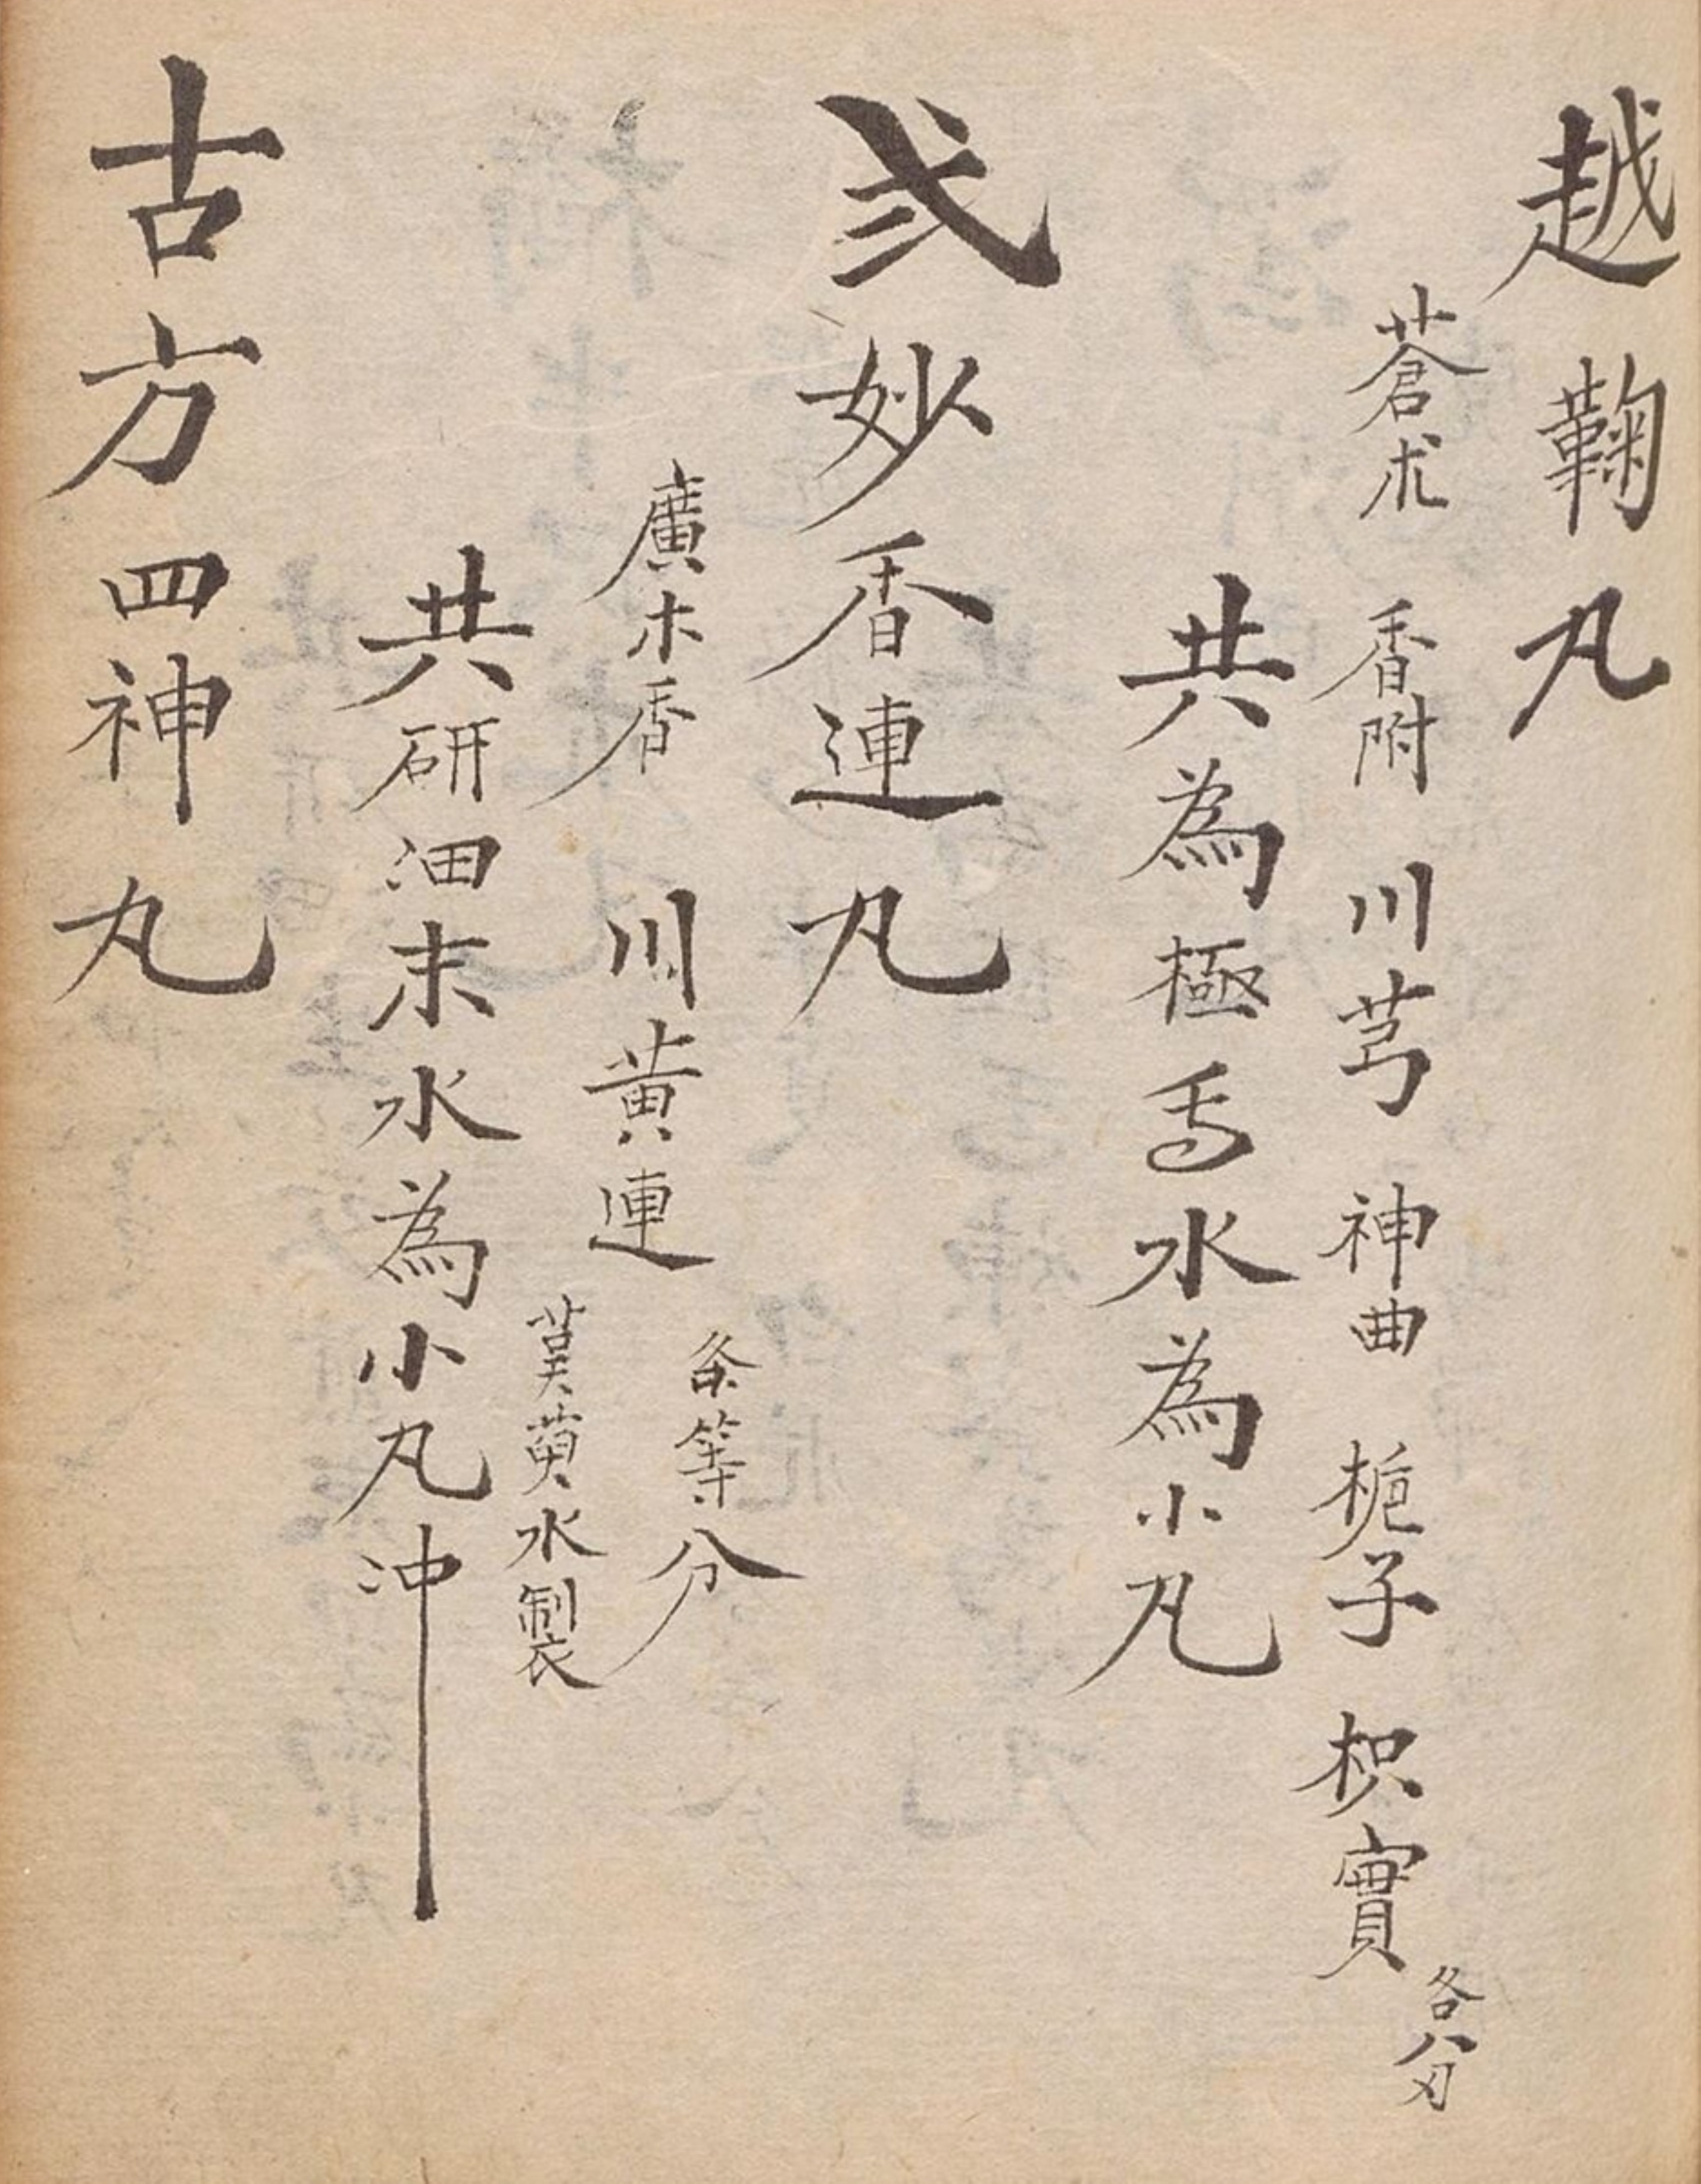 越鞠丸
蒼朮 香附 川芎 神曲 梔子 枳實 各分
共為極 水為小凡
弍妙香連丸
廣木香 川黄連 条等分
茰萸水製
共研細末水為小丸冲
古方四神丸